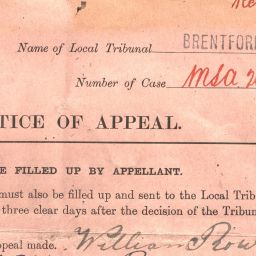 Name of Local Tribunal BRENTFOR
Number of Case MSA 2
TICE OF APPEAL.
E FILLED UP BY APPELLANT.
must also be filled up and sent to the Local Trib
three clear days after the decision of the Tribun
ppeal made. William Row